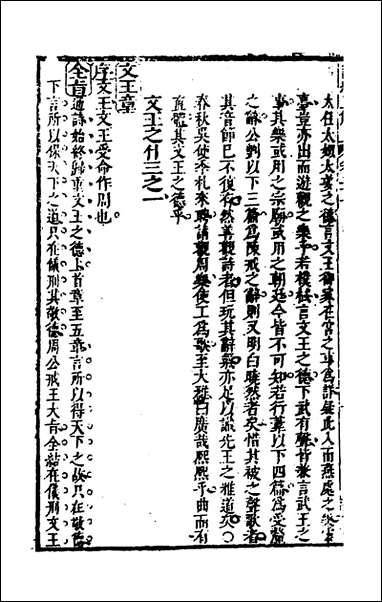 太任太姒太姜之德言文王雝肅在宮之事為詳疑此入而燕處之樂靈
臺章亦出而遊觀之樂乎若棫樸言文王之德下武有聲皆兼言武王之
事其樂或用之宗廟或用之朝廷今皆不可知若行葦以下四篇為受釐
之辭公劉以下三篇為陳戒之辭則又明白曉然者矣惜其被之聲歌者
其音節已不復存然善觀詩者但玩其辭義亦足以識先王之雅道矣〇
春秋吳使季札來聘請觀周樂使工為歌至大雅曰廣哉熙熙乎曲而有
直體其文王之德乎
文王之什三之一
文王章
序文王文王受命作周也
全旨通詩始終歸重文王之德上首章至五章言所以得天下之故只在敬德
下言所以保天下之道只在儀刑其敬德周公戒王大旨全結在儀刑文王